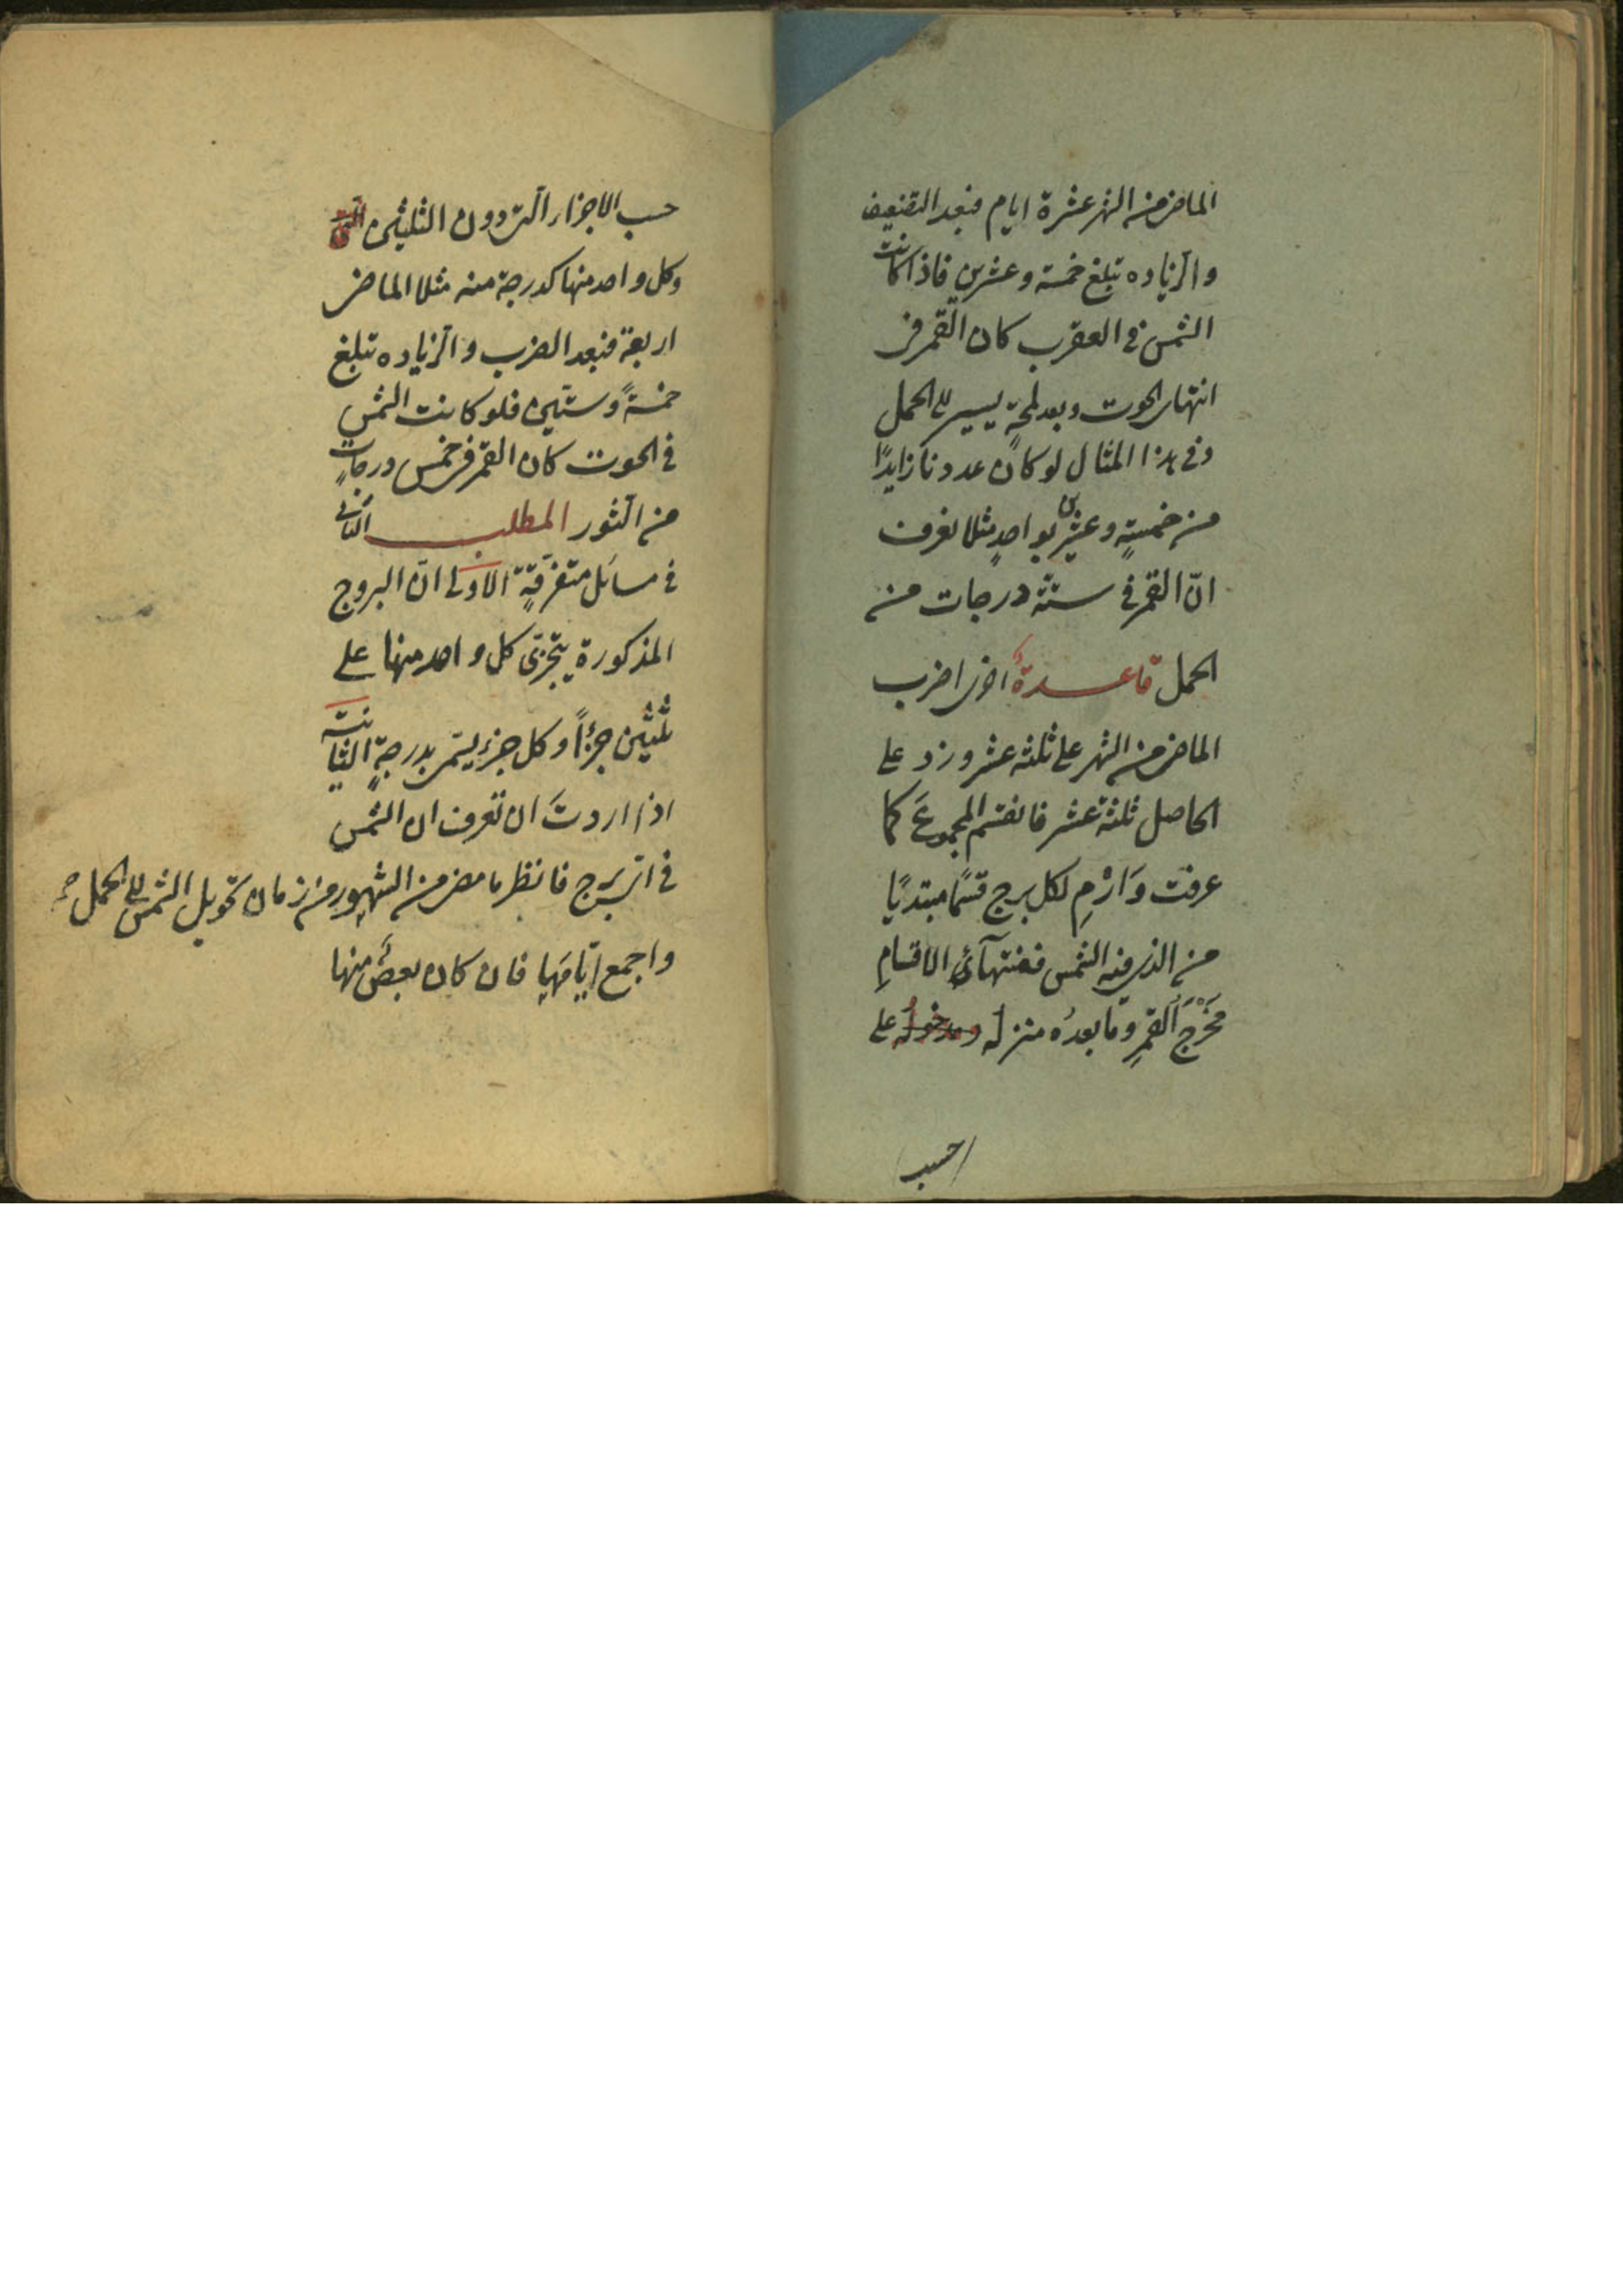 الماضي من الشهر عشرة ايام فبعد التضعيف
والزياده تبلغ خمسة وعشرين فاذا كانت
الشمس في العقرب كان القمر في
انتهاء الحوت وبعد لمحةٍ يسير الى الحمل
وفي هذا المثال لو كان عددنا زايدًا
من خمسةٍ وعشرين بواحدٍ مثلا نعرف
انّ القمر في ستّة درجات من
الحمل قاعدةٌ اخرى اضرب
الماضي من الشهر على ثلثة عشر وزد على
الحاصل ثلثة عشر فانقسم المجموعَ كما
عرفت وَارْمِ لكل برج قسمًا مبتديًا
من الذي فيه الشمس فمنتهآئ الاقسامِ
مَخْرَجُ القمرِ وما بعدُه منزله ومدخوله على
حسب
حسب الاجزاء الّتي دون الثلثين الّتي
وكل واحد منها كدرجة منه مثلا الماضي
اربعة فبعد الضرب والزياده تبلغ
خمسةً وستّين فلو كانت الشمس
في الحوت كان القمر في خمس درجاتٍ
من الثور المطلب الثاني
في مسائل متفرّقةٍ الاولى انّ البروج
المذكورة يتجزّى كل واحد منها على
ثلثين جزءًا وكل جزءٍ يسمّى بدرجةٍ الثانية
اذا اردتَ ان تعرف ان الشمس
في ايّ برج فانظر ما مضى من الشهور من زمان تحويل الشمس الى الحمل
واجمع ايّامَها فان كان بعضٌ منها